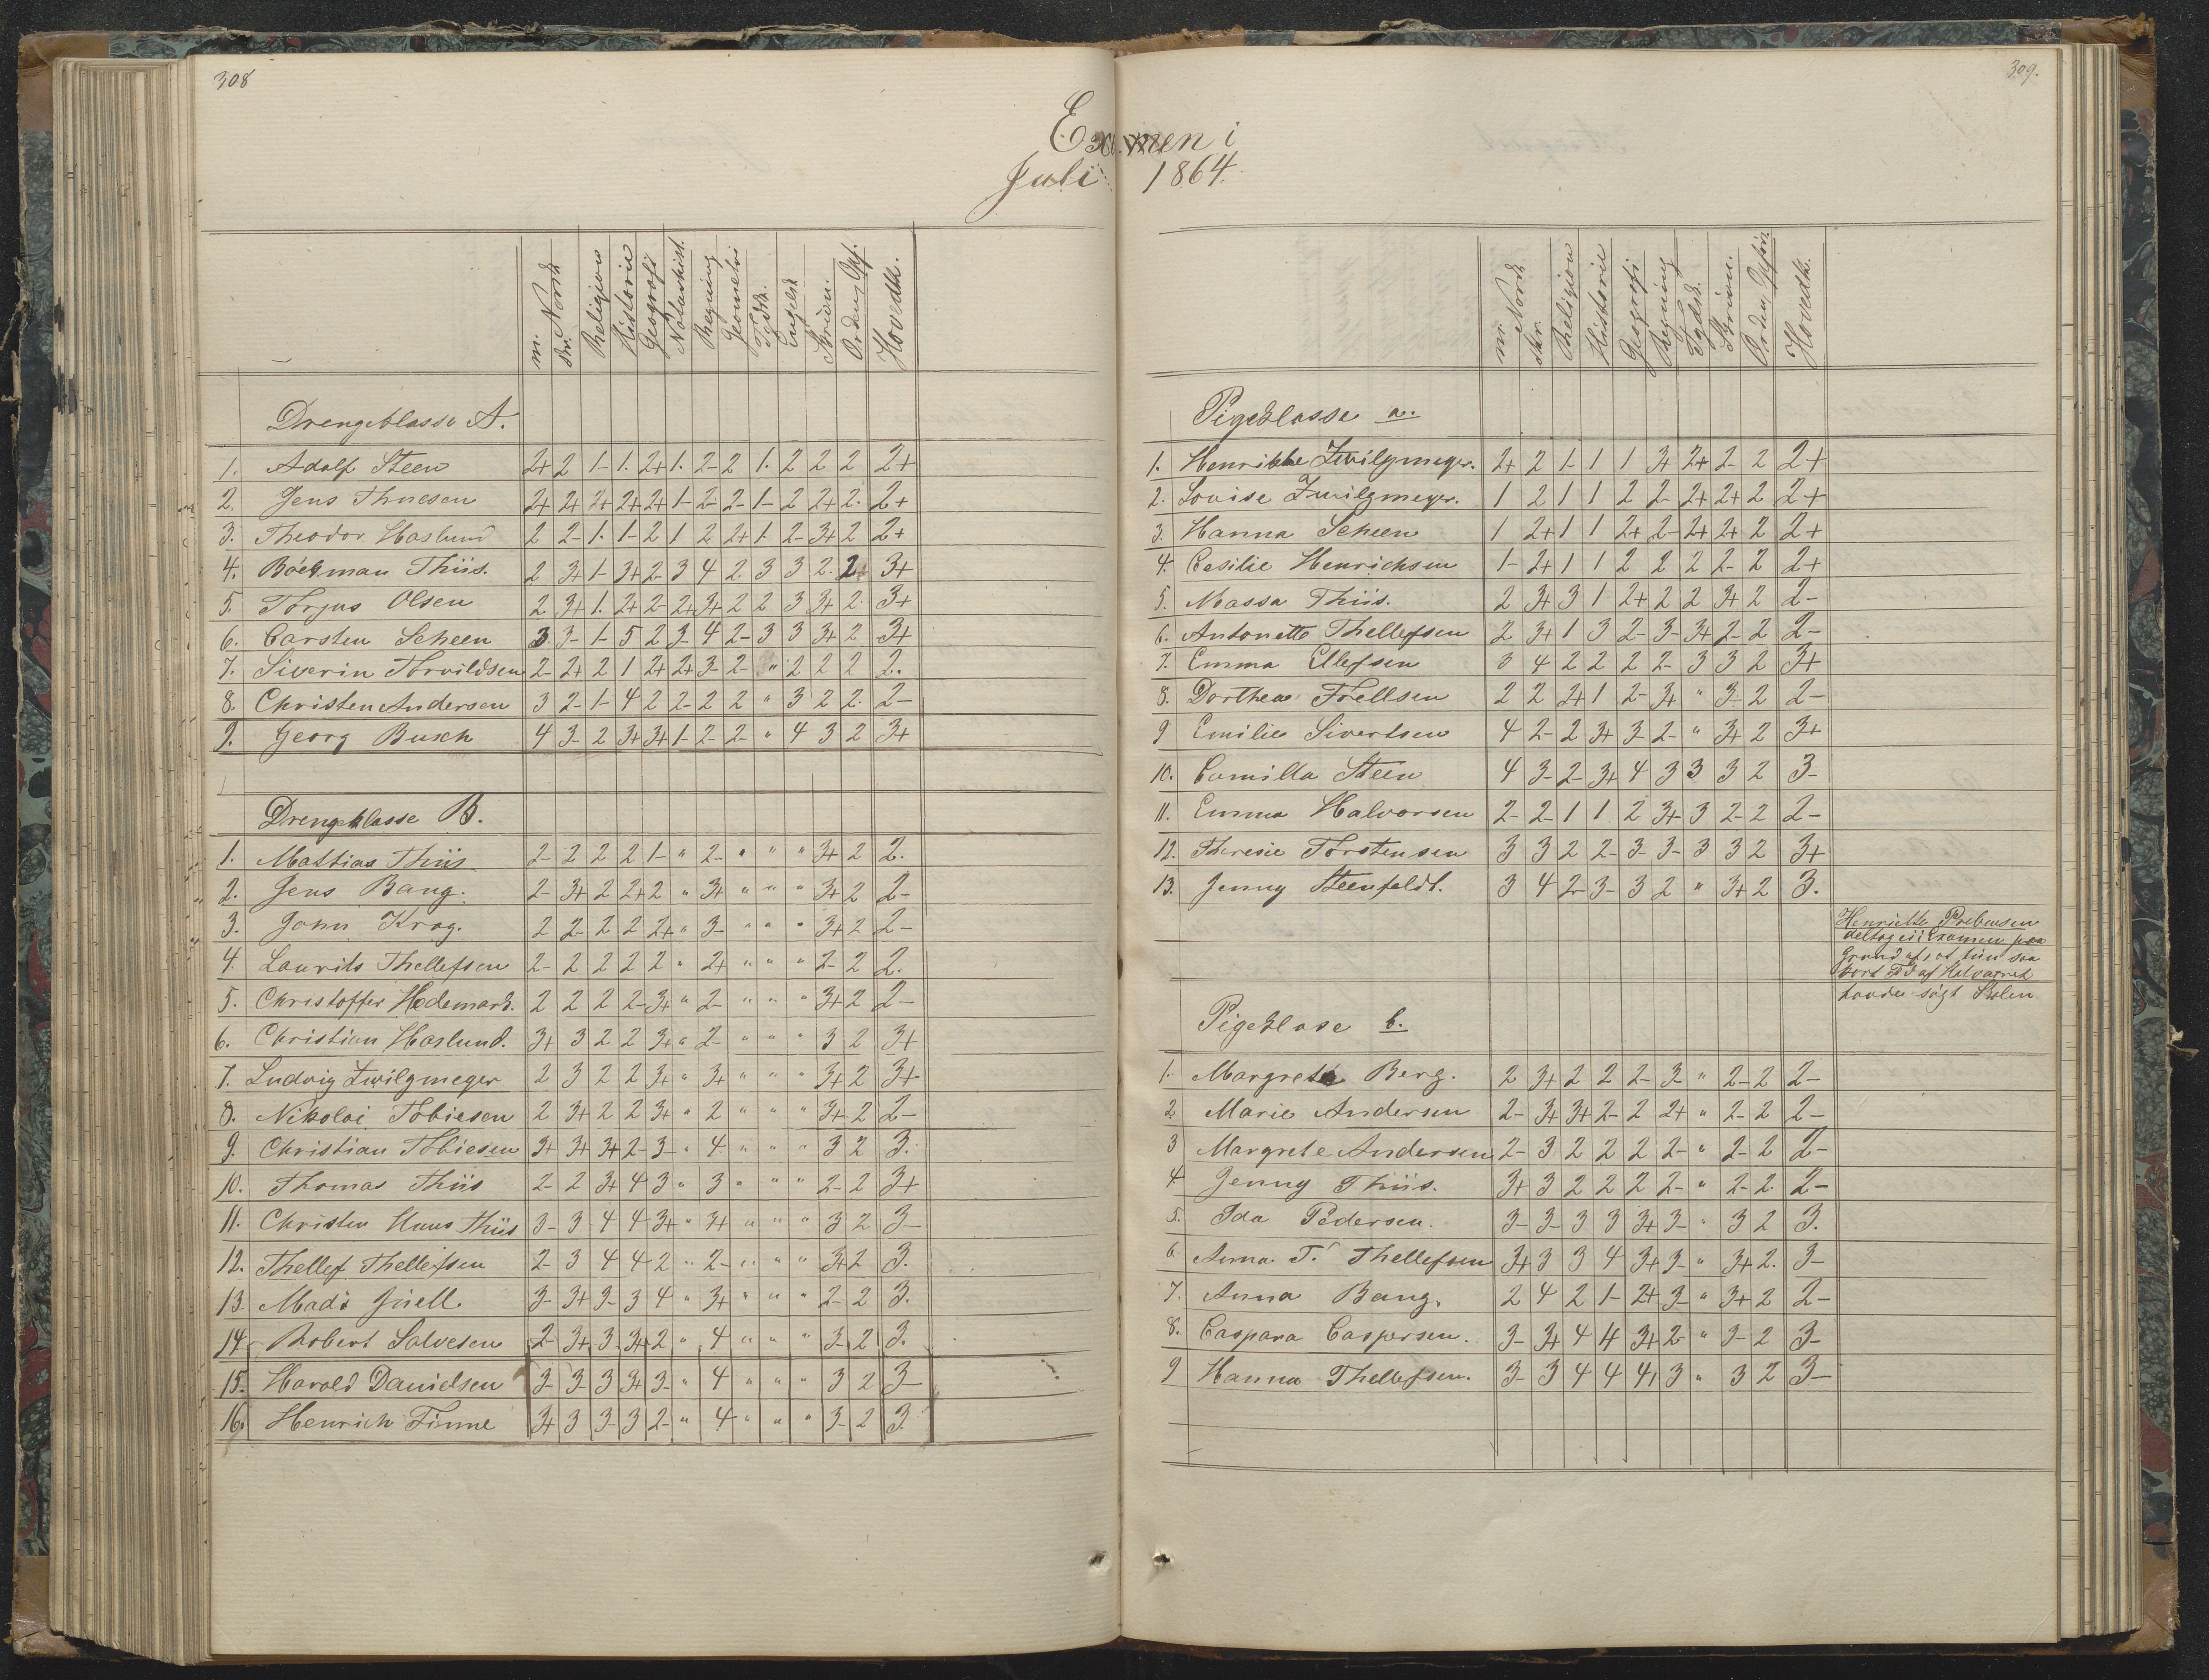 308
Examen i
Juli
m. Norsk
skr. Norsk
Religion
Historie
Geografi
Naturhist.
Regning
Geometri
Tydsk.
Engelsk
Skrivn.
Orden, Opf.
Hovedk.
Drengeklasse A.
1. Adolf Steen 2+ 2 1- 1. 2+ 1. 2- 2 1. 2 2 2 2+
2. Jens Thuesen 2+ 2+ 2+ 2+ 2+ 1- 2- 2- 1- 2 2+ 2. 2+
3. Theodor Haslund 2 2- 1. 1- 2 1 2 2+ 1- 2- 3+ 2 2+
4. Böckman Thiis. 2 3+ 1- 3+ 2- 3 4 2 3 3 2. 2 3+
5. Torjus Olsen 2 3+ 1. 2+ 2- 2+ 3+ 2 2 3 3+ 2 3+
6. Carsten Scheen 3 3- 1- 5 2 3- 4 2- 3 3 3+ 2 3+
7. Siverin Torvildsen 2- 2+ 2 1 2+ 2+ 3- 2- " 2 2 2 2.
8. Christen Andersen 3 2- 1- 4 2 2- 2 2 " 3 2 2. 2-
9. Georg Busch 4 3- 2 3+ 3+ 1- 2- 2- " 4 3 2 3+
Drengeklasse B.
1. Mathias Thiis 2- 2 2 2 1- " 2- " " " 3+ 2 2.
2. Jens Bang. 2- 3+ 2 2+ 2 " 3+ " " " 3+ 2 2-
3. John Krag. 2 2- 2 2 2+ " 3- " " " 3+ 2 2-
4. Laurits Thellefsen 2- 2 2 2 2 " 2+ " " " 2- 2 2.
5. Christoffer Hedemark. 2 2 2 2- 3+ " 2- " " " 3+ 2 2-
6. Christian Haslund. 3+ 3 2 2 3+ " 2- " " " 3 2 3+
7. Ludvig Zwilgmeyer 2 3 2 2 3+ " 3+ " " " 3+ 2 3+
8. Nikolai Tobiesen 2 3+ 2 2 3+ " 2 " " " 3+ 2 2-
9. Christian Tobiesen 3+ 3+ 3+ 2- 3- " 4 " " " 3 2 3.
10. Thomas Thiis 2- 2 3+ 4 3 " 3 " " " 2- 2 3+
11. Christen Thiis 3- 3 4 4 3+ " 3+ " " " 3 2 3-
12. Thellef Thellefsen 2- 3 4 4 2 " 2- " " " 3+ 2 3.
13. Mads Juell 3- 3+ 3- 3 4 " 3+ " " " 2- 2 3.
14. Robert Salvesen 2- 3+ 3- 3+ 2 " 4 " " " 3- 2 3.
15. Harald Danielsen 3- 3- 3 3+ 3- " 4 " " " 3 2 3-
16. Henrich Finne 3+ 3 3- 3 2- " 4 " " " 3- 2 3.
309.
1864.
m. Norsk
skr. Norsk
Religion
Historie
Geografi
Regning
Tydsk.
Skrivn.
Orden, Opför.
Hovedk.
Pigeklasse a.
1. Henrikke Zwilgmeyer. 2+ 2 1- 1 1 3+ 2+ 2- 2 2+
2. Louise Zwilgmeyer. 1 2 1 1 2 2- 2+ 2+ 2 2+
3. Hanna Scheen 1 2+ 1 1 2+ 2- 2+ 2+ 2 2+
4. Cesilie Henrichsen 1- 2+ 1 1 2 2 2 2- 2 2+
5. Massa Thiis. 2 3+ 3 1 2+ 2 2 3+ 2 2-
6. Antonette Thellefsen 2 3+ 1 3 2- 3- 3+ 2- 2 2-
7. Emma Ellefsen 3 4 2 2 2 2- 3 3 2 3+
8. Dorthea Frellsen 2 2 2+ 1 2- 3+ " 3- 2 2-
9 Emilie Sivertsen 4 2- 2 3+ 3- 2- " 3+ 2 3+
10. Camilla Steen 4 3- 2- 3+ 4 3 3 3 2 3-
11. Emma Halvorsen 2- 2- 1 1 2 3+ 3 2- 2 2-
12. Theresie Torstensen 3 3 2 2- 3- 3- 3 3 2 3+
13. Jenny Steenfeldt. 3 4 2- 3- 3 2 " 3+ 2 3.
Henriette Prebensen
deltog ei i Examen paa
Grund af, at hun saa
kort Tid af Halvaaret
havde søgt Skolen
Pigeklasse b.
1. Margrete Berg. 2 3+ 2 2 2- 3- " 2- 2 2-
2. Marie Andersen 2- 3+ 3+ 2- 2 2+ " 2- 2 2-
3 Margrete Andersen 2- 3 2 2 2 2- " 2- 2 2-
4 Jenny Thiis. 3+ 3 2 2 2 2- " 2- 2 2-
5. Ida Pedersen. 3- 3- 3 3 3+ 3- " 3 2 3.
6. Anna T. Thellefsen 3+ 3 3 4 3+ 3- " 3+ 2. 3-
7. Anna Bang. 2 4 2 1- 2+ 3- " 3+ 2 2-
8. Caspara Caspersen. 3- 3+ 4 4 3+ 2- " 3- 2 3-
9 Hanna Thellefsen. 3- 3 4 4 4 3 " 3 2 3-